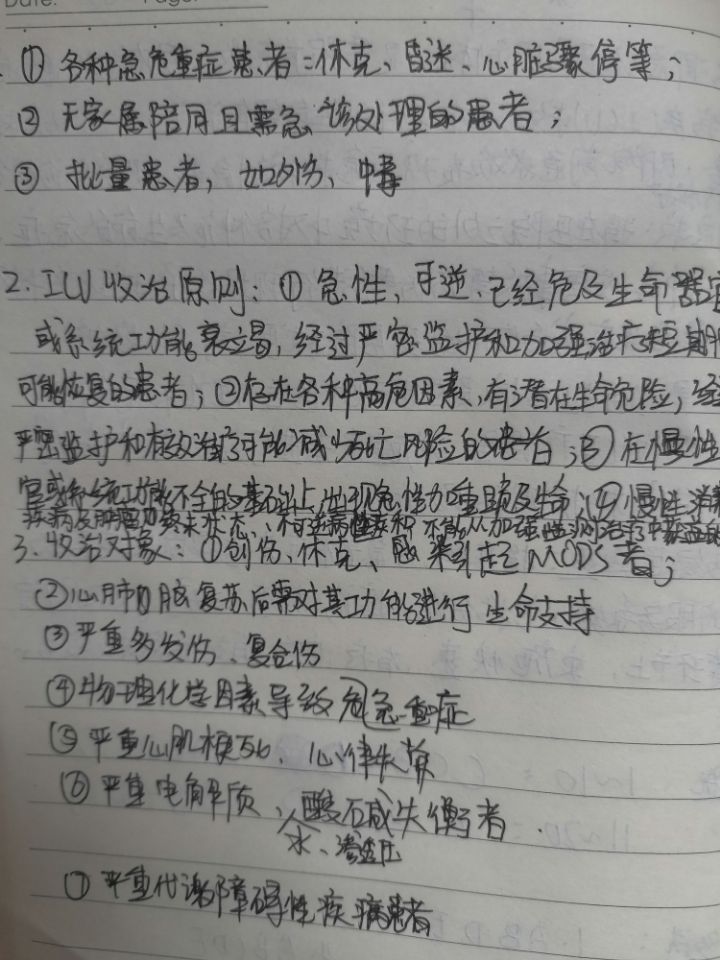 Date:
① 各种急危重症患者:休克、昏迷、心脏骤停等;
② 无家属陪同且需急诊处理的患者;
③ 批量患者,如外伤、中毒
2. ICU收治原则:① 急性、可逆、已经危及生命器官
或系统功能衰竭,经过严密监护和加强治疗短期
可能恢复的患者;②存在各种高危因素,有潜在生命危险,经
严密监护和有效治疗可能减少死亡风险的患者;③在慢性
官或系统功能不全的基础上,出现急性加重且危及生命;④慢性消耗
疾病及肿瘤的终末状态、不可逆性疾病和不能从加强监测治疗中获益
3. 收治对象:①创伤、休克、感染引起MODS者;
②心肺脑复苏后需对其功能进行生命支持
③严重多发伤、复合伤
④物理化学因素导致危急重症
⑤严重心肌梗死、心律失常
⑥严重电解质、酸碱失衡者.
水、渗透压
⑦严重代谢障碍性疾病患者